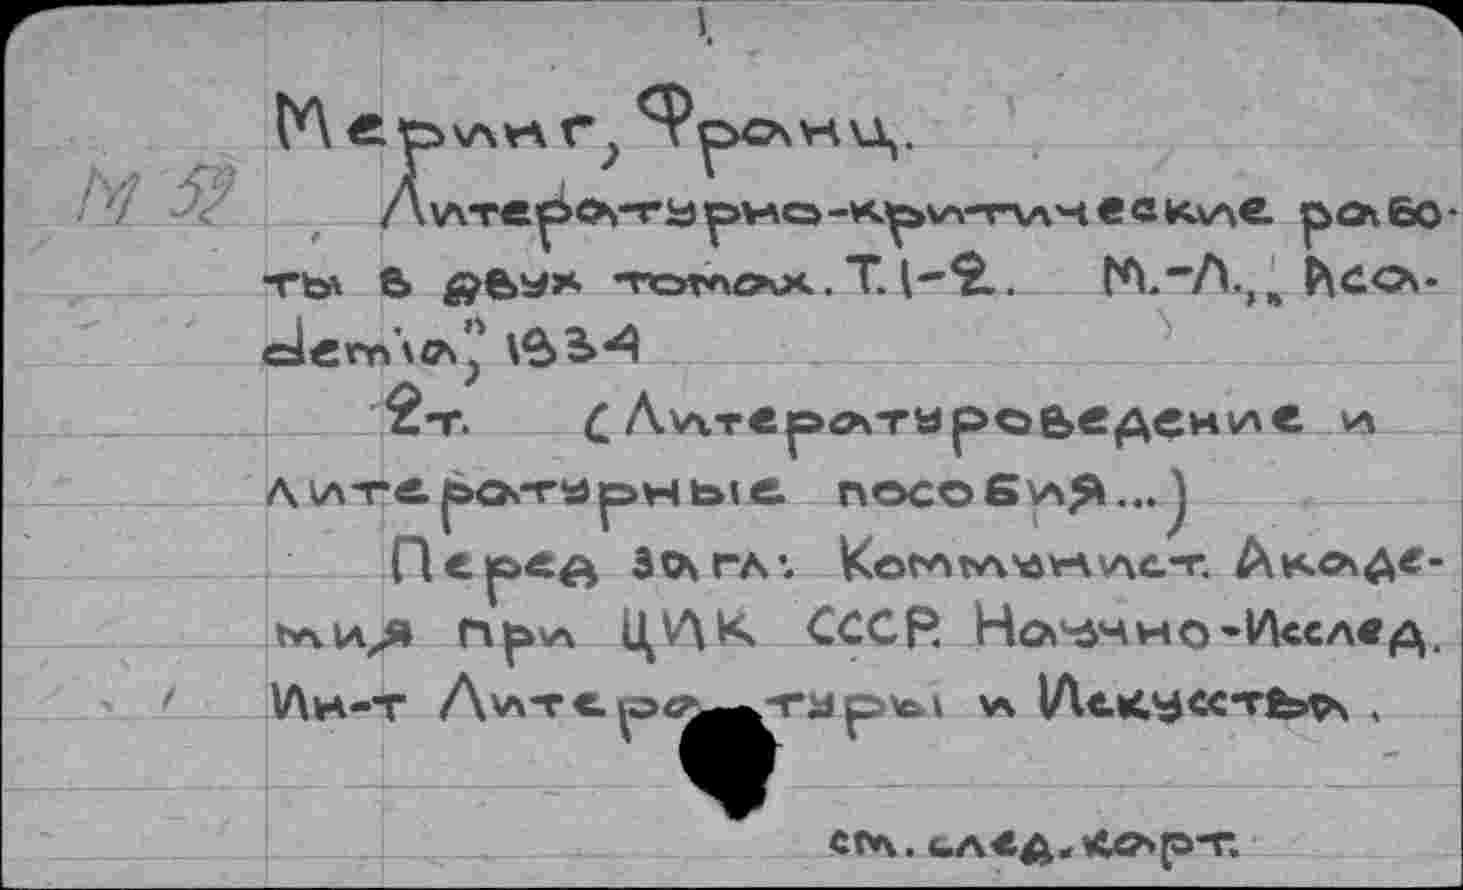 1.
Меринг, Франц.
М 52
Литературно-критические рабо-
ты в двух томах. Т.1-2. М.-Л., "Аca-
demia", 1934
2т. (Литературоведение и
литературные пособия...)
Перед загл: Коммунист. Акаде-
мия при ЦИК СССР. Научно-Исслед.
Ин-т Литературы и Искусства.
см. след. карт.